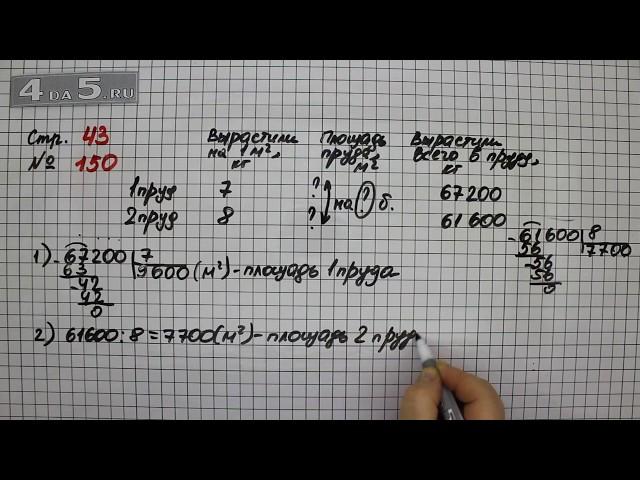 4 DA 5.RU
Стр. 43
№ 150
Вырастили на 1 м², кг
Площадь пруда, м²
Вырастили всего в пруду, кг
1 пруд 7 ? 67200
на ? б.
2 пруд 8 ? 61600
1) 67200 | 7
63 9600 (м²) - площадь 1 пруда
- 42
42
0
- 61600 | 8
56 7700
- 56
56
0
2) 61600 : 8 = 7700 (м²) - площадь 2 пруд